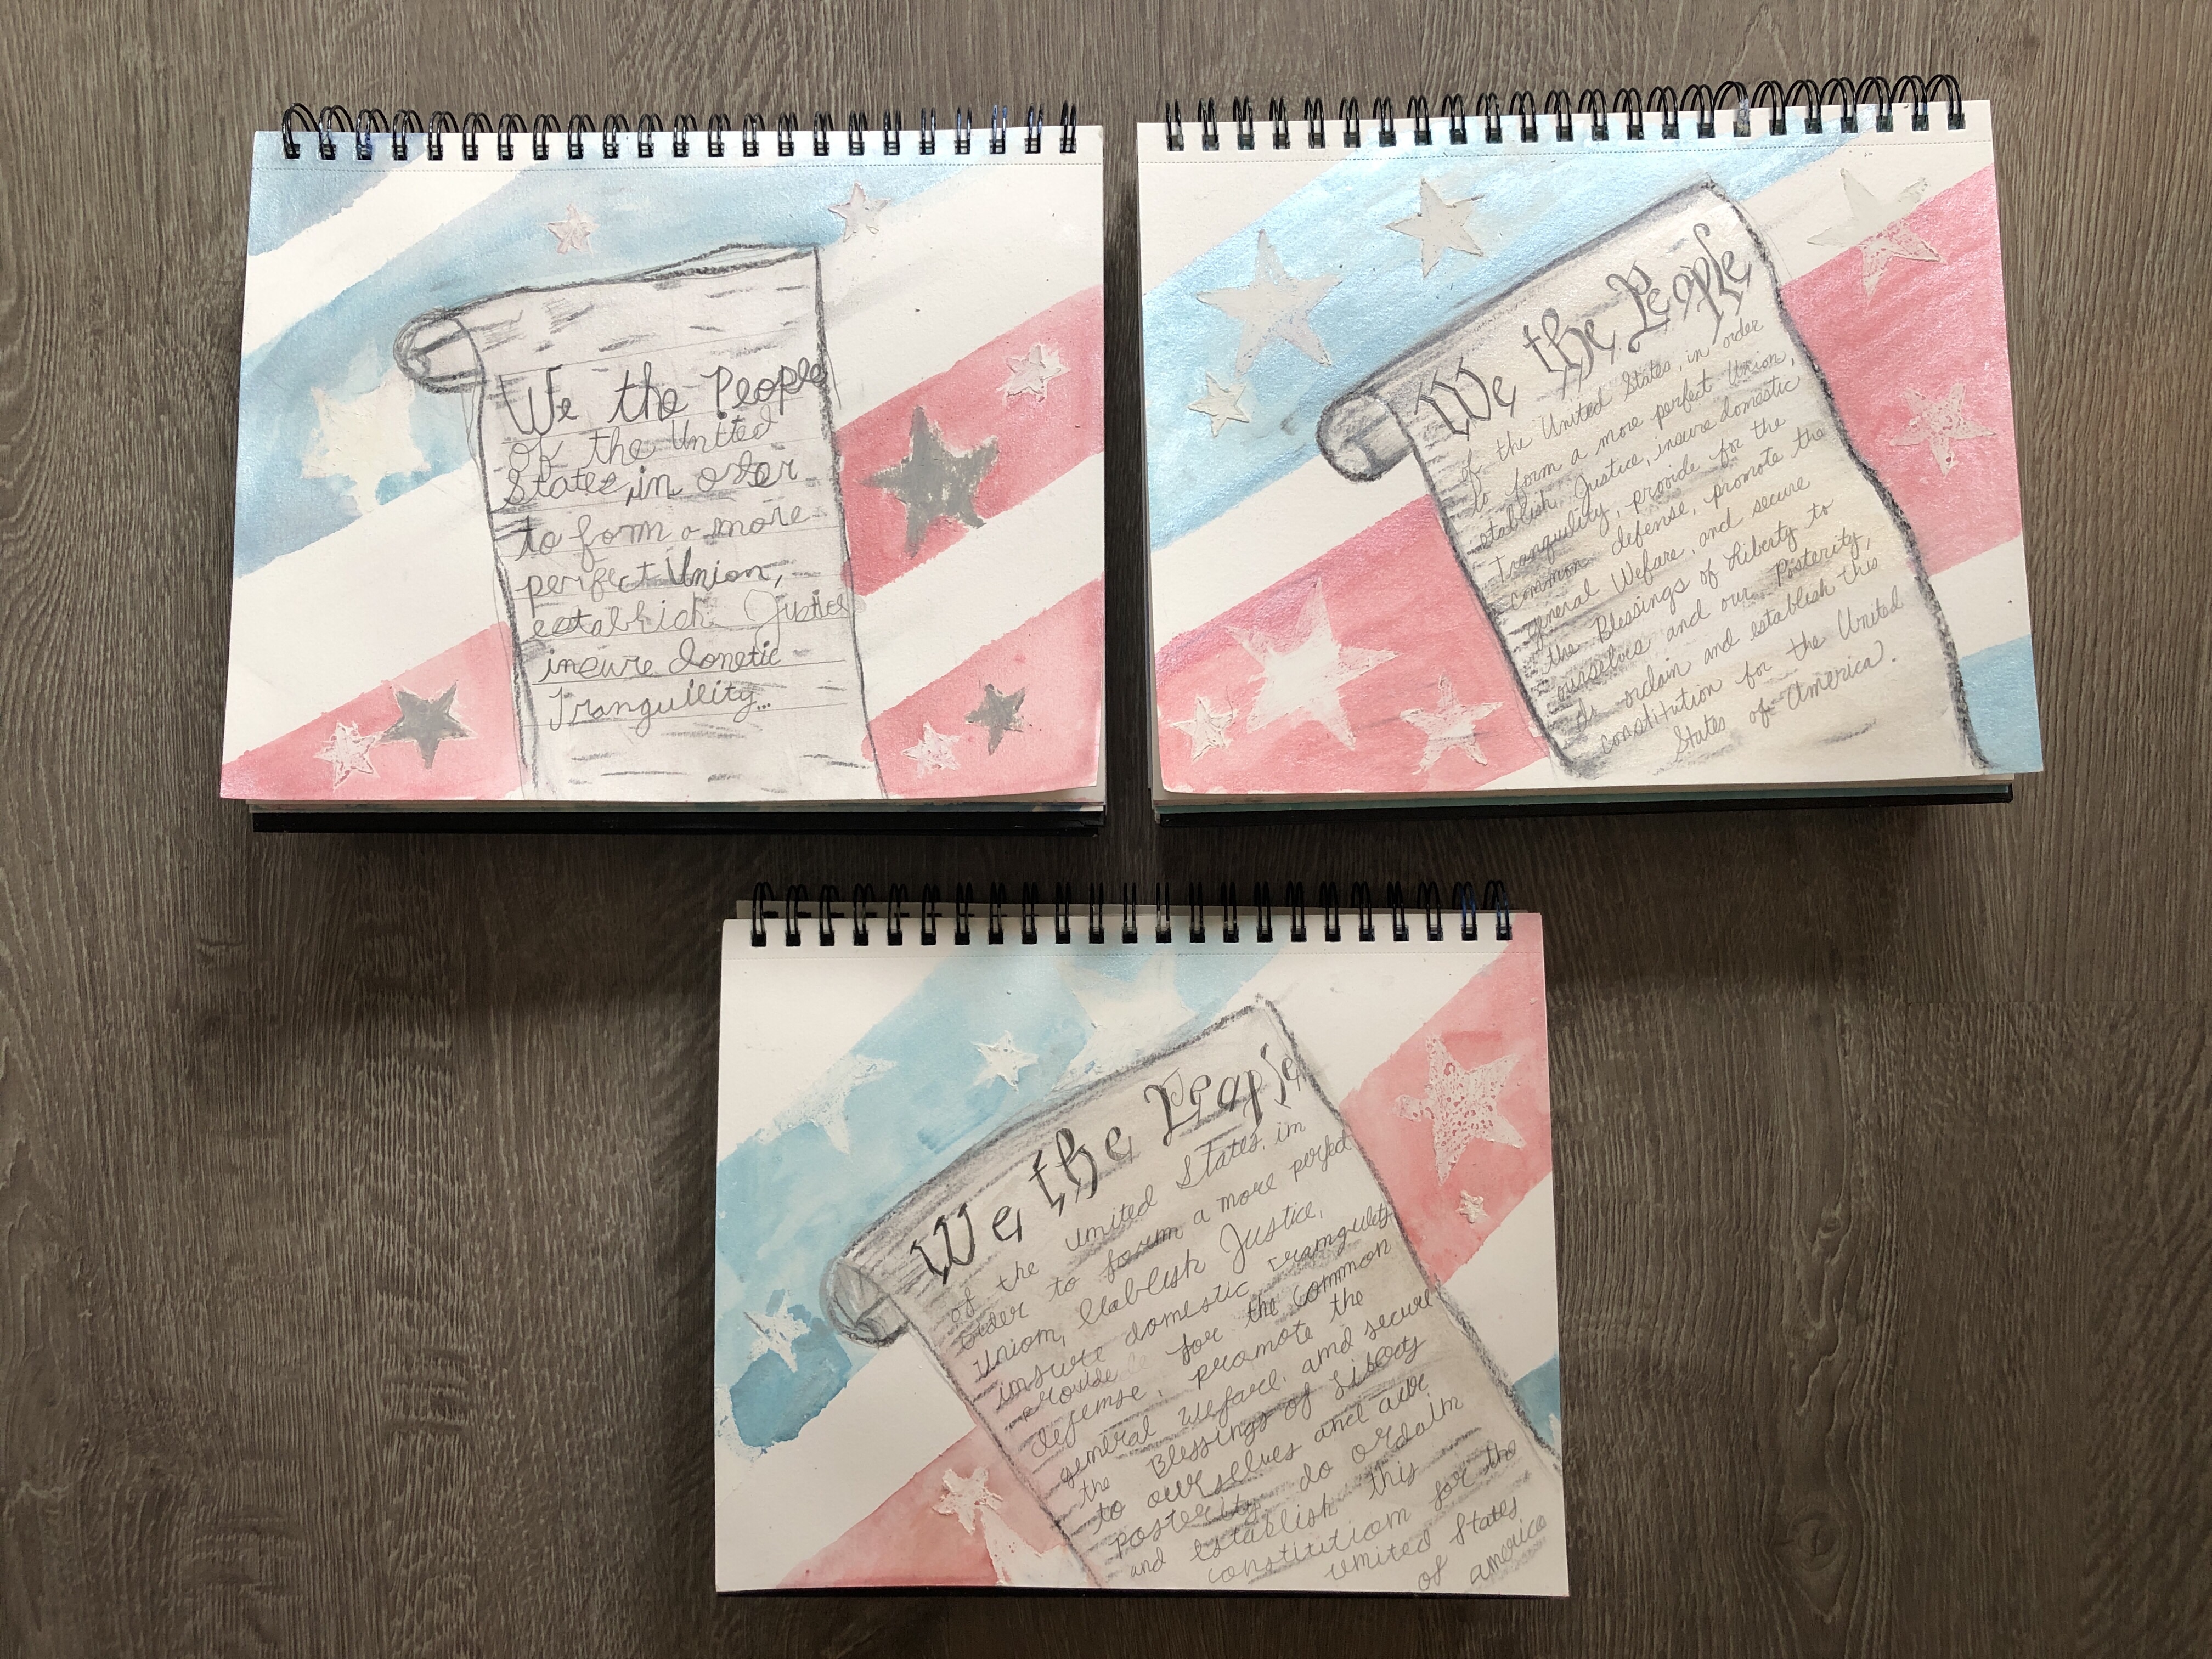 We the People
of the United
States, in order
to form a more
perfect Union,
establich Justice
insure donetic
Tranguility...
We the People
of the United States, in order
to form a more perfect Union,
establish Justice, insure domestic
Tranquility, provide for the
common defense, promote the
general Welfare, and secure
the Blessings of Liberty to
ourselves and our Posterity,
do ordain and establish this
constitution for the United
States of America.
We the People
of the United States, in
order to form a more perfect
Union, Establish Justice,
insure domestic tranquility
provide for the common
defense, promote the
general welfare, and secure
the Blessings of Liberty
to ourselves and our
posterity do ordain
and establish this
constitution for the
United States
of america